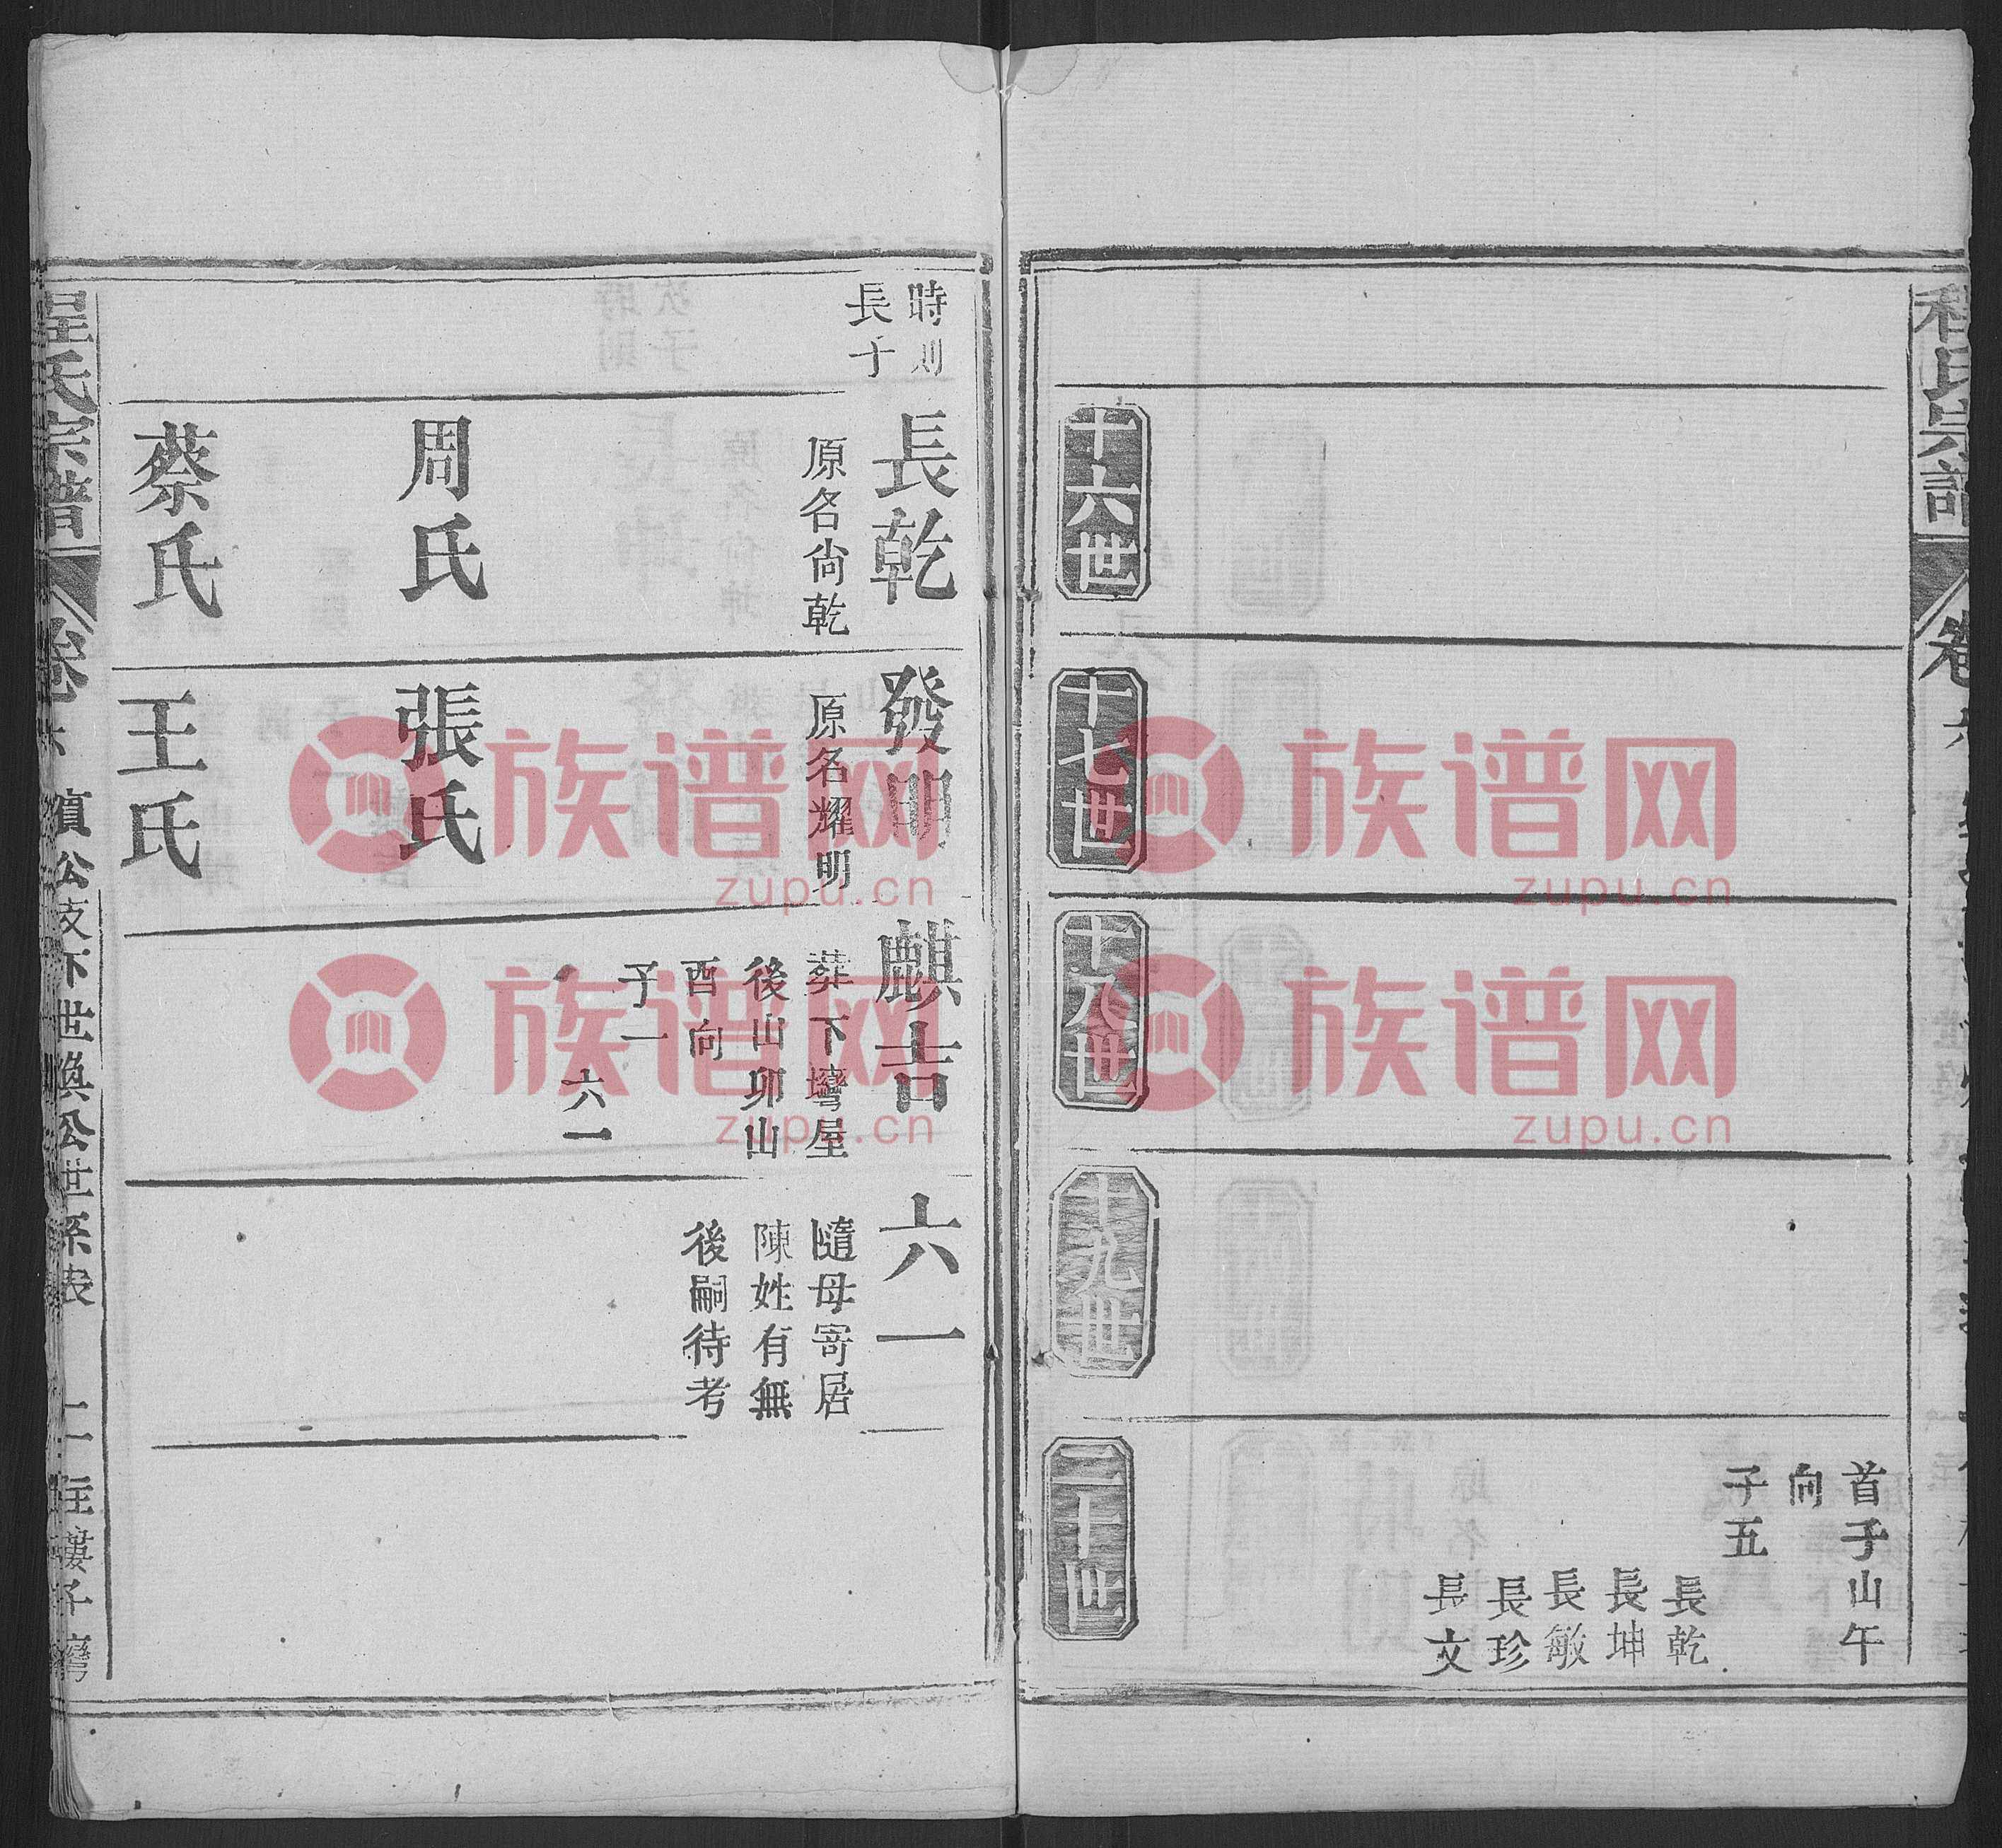 程氏宗譜
卷六
首子山午
向
子五
長乾
長坤
長敏
長珍
長文
十六世
十七世
十八世
十九世
二十世
時則
長子
長乾
原名尙乾
周氏
蔡氏
發明
原名耀明
張氏
王氏
麒吉
葬下塆屋
後山卯山
酉向
子一
六一
六一
隨母寄居
陳姓有無
後嗣待考
程氏宗譜
卷六
公支下世煥公世系表
二
灣
族谱网
zupu.cn
族谱网
zupu.cn
族谱网
zupu.cn
族谱网
zupu.cn